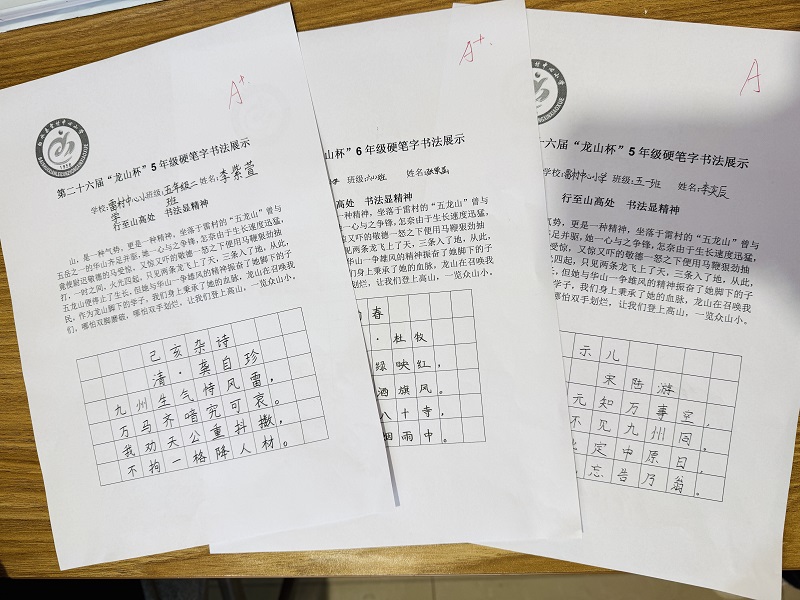 A+
第二十六届“龙山杯”5年级硬笔字书法展示
学校:雷村中心小学 班级:五年级二班 姓名:李紫萱
行至山高处 书法显精神
山,是一种气势,更是一种精神,坐落于雷村的“五龙山”曾与
五岳之一的华山齐足并驱,她一心与之争锋,怎奈由于生长速度迅猛,
竟使尉迟敬德的马受惊,又惊又吓的敬德一怒之下便用马鞭狠劲抽
打,一时之间,火光四起,只见两条龙飞上了天,三条入了地,从此,
五龙山便停止了生长,但她与华山一争雄风的精神振奋了她脚下的子
民,作为龙山脚下的学子,我们身上秉承了她的血脉,龙山在召唤我
们,哪怕双脚磨破,哪怕双手划烂,让我们登上高山,一览众山小。
己亥杂诗
清·龚自珍
九州生气恃风雷,
万马齐喑究可哀。
我劝天公重抖擞,
不拘一格降人材。
A+
山杯”6年级硬笔字书法展示
班级:六(1)班 姓名:
山高处 书法显精神
一种精神,坐落于雷村的“五龙山”曾与
她一心与之争锋,怎奈由于生长速度迅猛,
又惊又吓的敬德一怒之下便用马鞭狠劲抽
只见两条龙飞上了天,三条入了地,从此,
但她与华山一争雄风的精神振奋了她脚下的子
我们身上秉承了她的血脉,龙山在召唤我
哪怕双手划烂,让我们登上高山,一览众山小。
春
·杜牧
绿映红,
酒旗风。
八十寺,
烟雨中。
A
十六届“龙山杯”5年级硬笔字书法展示
学校:雷村中心小学 班级:五一班 姓名:李奕辰
行至山高处 书法显精神
气势,更是一种精神,坐落于雷村的“五龙山”曾与
齐足并驱,她一心与之争锋,怎奈由于生长速度迅猛,
受惊,又惊又吓的敬德一怒之下便用马鞭狠劲抽
四起,只见两条龙飞上了天,三条入了地,从此,
但她与华山一争雄风的精神振奋了她脚下的子
我们身上秉承了她的血脉,龙山在召唤我
哪怕双手划烂,让我们登上高山,一览众山小。
示儿
宋陆游
元知万事空,
不见九州同。
定中原日,
忘告乃翁。